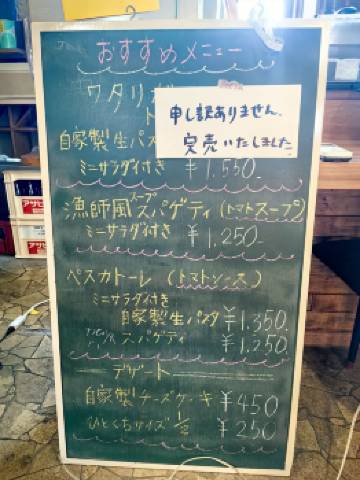 おすすめメニュー
ワタリガ
申し訳ありません。
完売いたしました。
自家製生パス
ミニサラダ付き ¥1,550-
漁師風スープスパゲティ(トマトスープ)
ミニサラダ付き ¥1,250-
ペスカトーレ(トマトソース)
ミニサラダ付き
自家製生パスタ ¥1,350.
スパゲティ ¥1,250
デザート
自家製チーズケーキ ¥450
ひとくちサイズ 1/2 ¥250
アサヒ